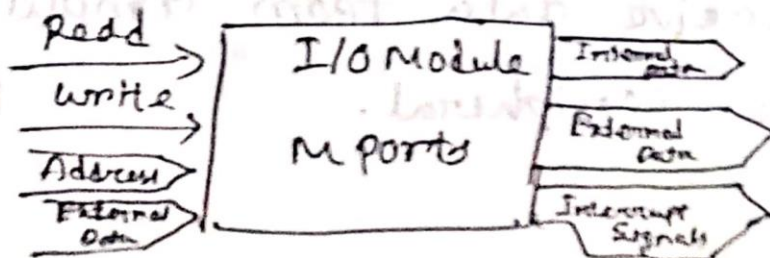 Read
Write
Address
External
Data
I/O Module
M ports
Internal
Data
External
Data
Interrupt
Signals